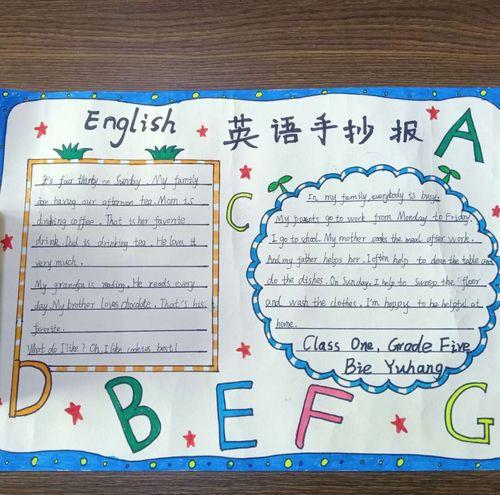 English 英语手抄报
A
It's four thirty on Sunday. My family
are having our afternoon tea. Mom is
drinking coffee. That is her favorite
drink. Dad is drinking tea. He loves it
very much.
My grandpa is reading. He reads every
day. My brother loves chocolate. That's his
favorite.
What do I like? Oh, I like cookies best!
C
In my family, everybody is busy.
My parents go to work from Monday to Friday.
I go to school. My mother cooks the meal after work.
And my father helps her. I often help to clean the table and
do the dishes. On Sunday, I help to sweep the floor
and wash the clothes. I'm happy to be helpful at
home.
Class One, Grade Five
Bie Yuhang
D B E F G